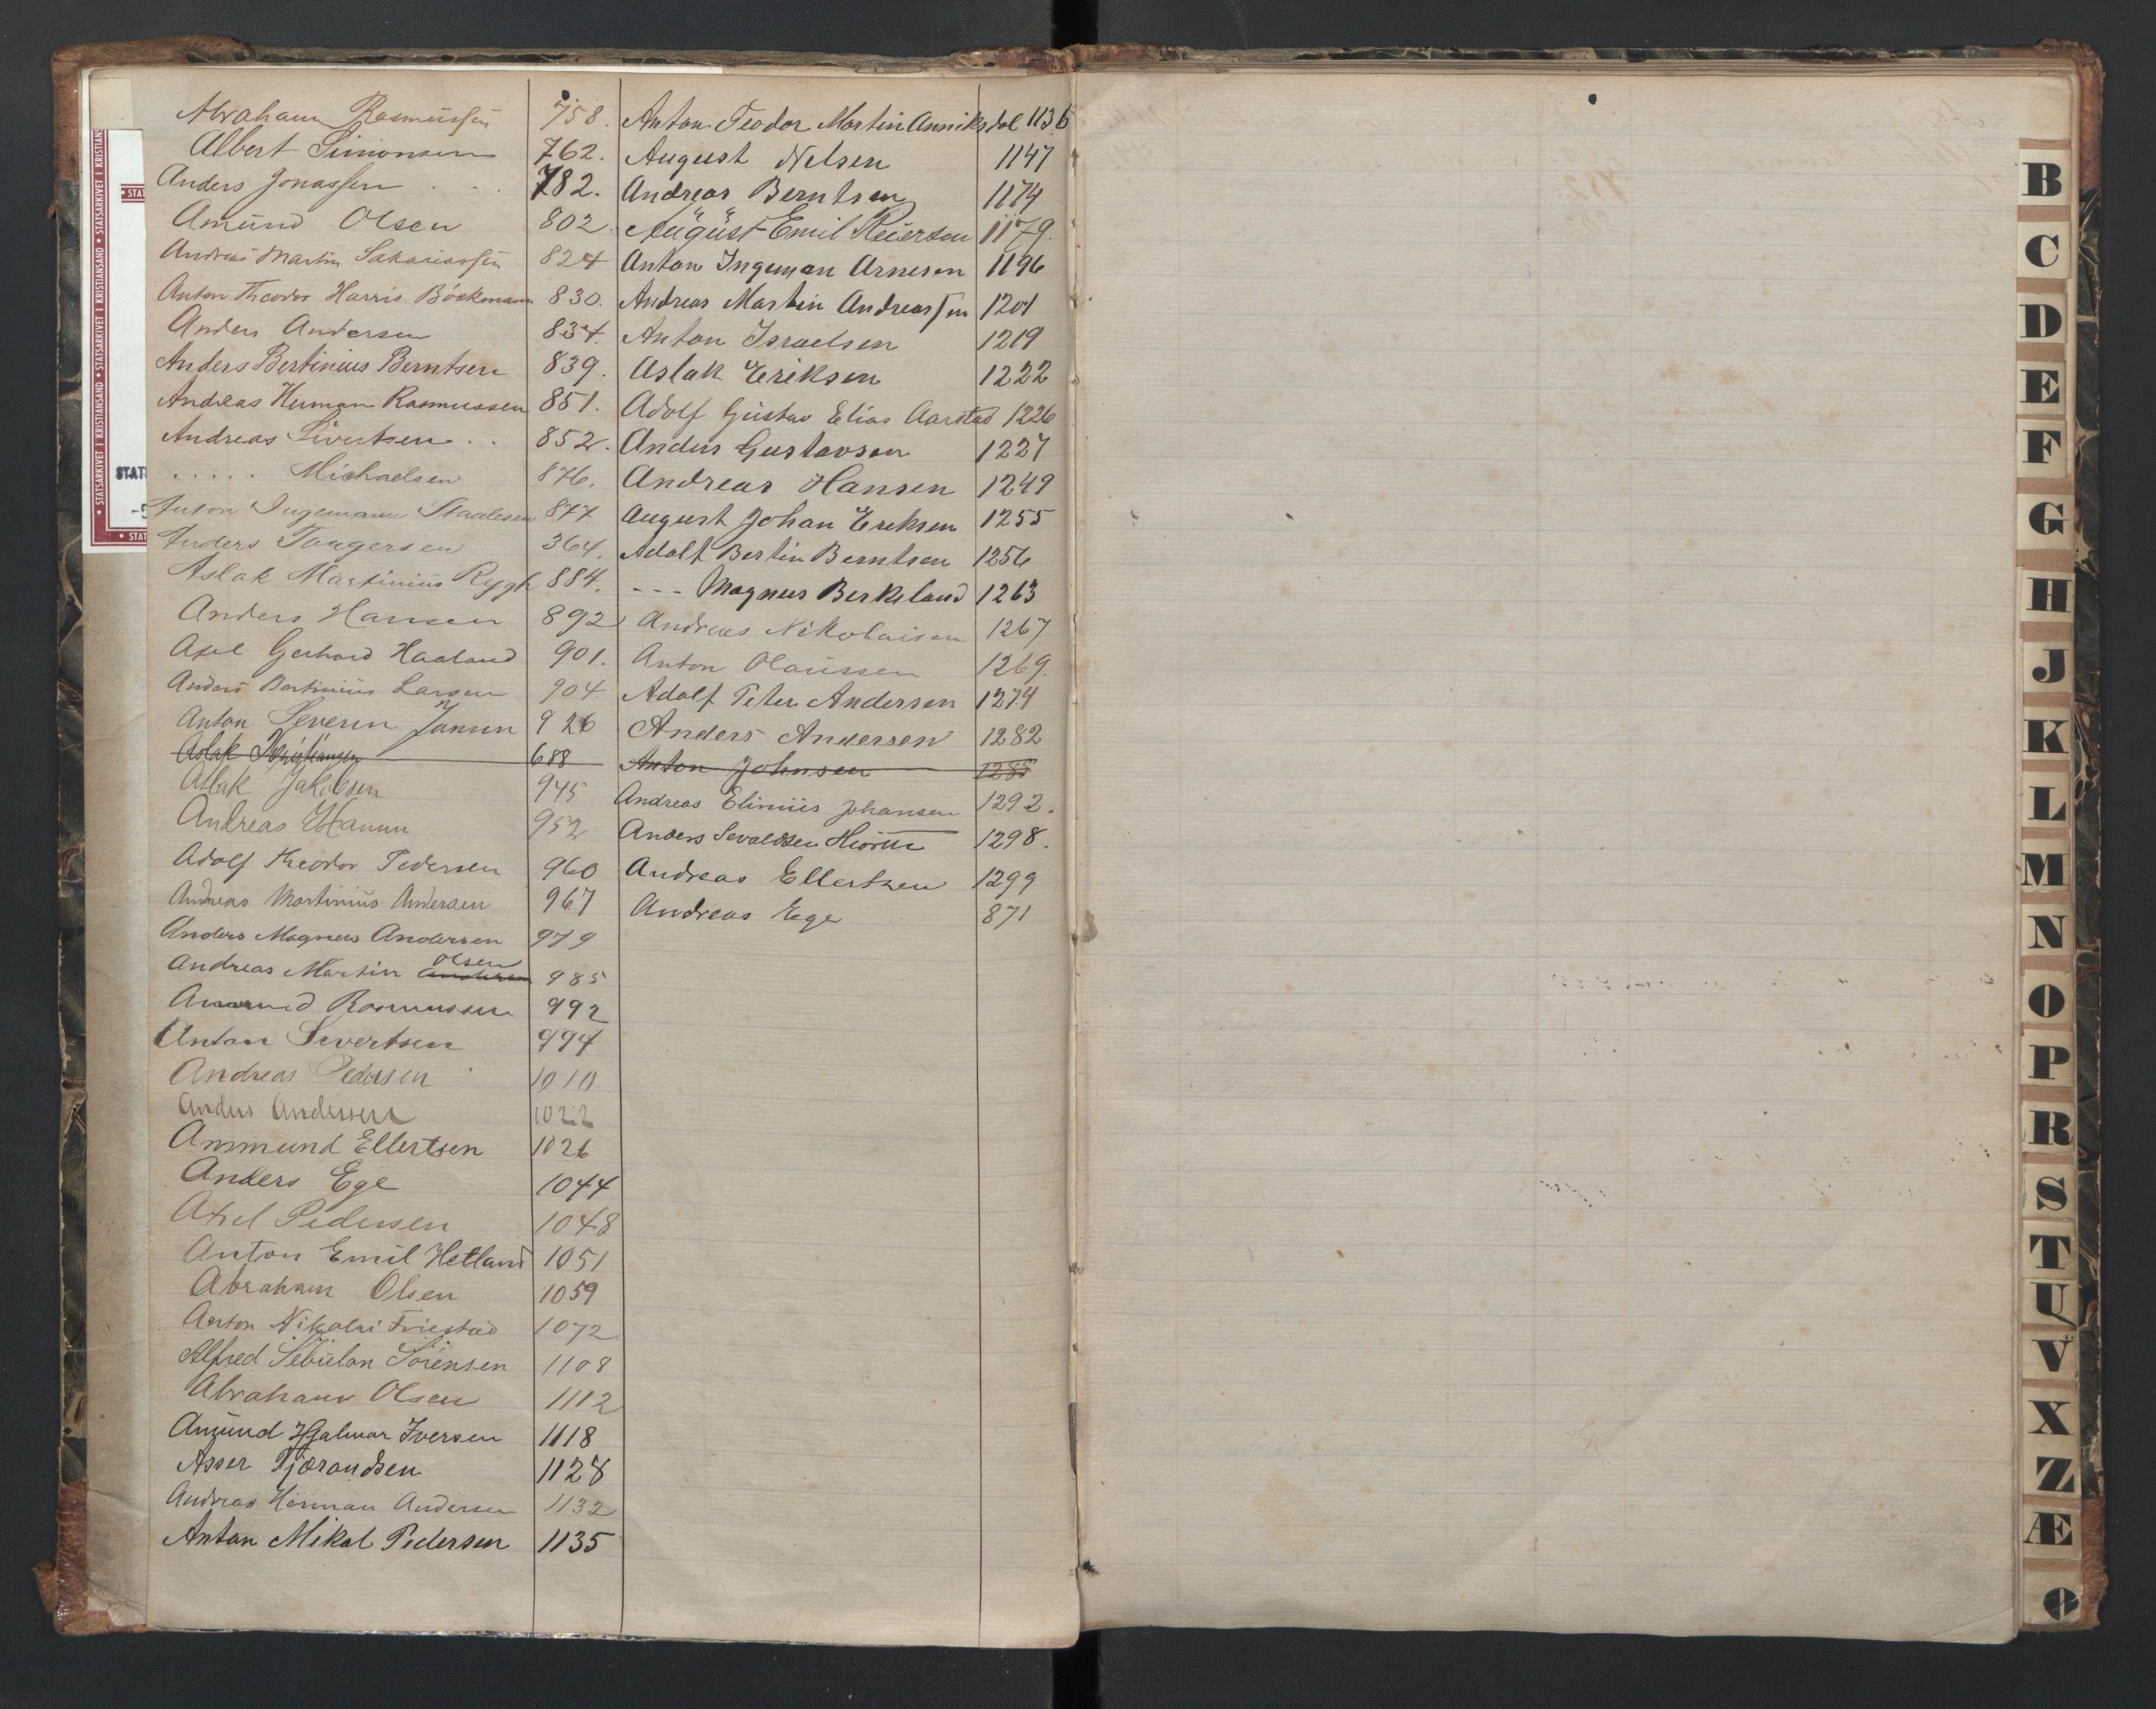 Abraham Rasmussen 758.
Albert Simonsen 762.
Anders Jonassen . . . 782.
Amund Olsen 802.
Andreas Martin Sakariassen 824
Anton Theodor Harris Böckmann 830.
Anders Andersen 834.
Anders Bertinius Berntsen 839.
Andreas Herman Rasmussen 851.
Andreas Sivertsen . . 852.
. . . . . Michaelsen 876.
Anton Ingemann Staalesen 877
Anders Torgersen 364.
Aslak Martinius Rygh 884.
Anders Hansen 892
Axel Gerhard Haaland 901.
Anders Bertinius Larsen 904.
Anton Severin Jonsen 926
Aslak Kristiansen 688
Aslak Jakobsen 945
Andreas Hansen 952
Adolf Theodor Pedersen 960
Andreas Martinius Andersen 967
Anders Magnus Andersen 979
Andreas Martin Andersen Olsen 985
Amund Rasmussen 992
Anton Sivertsen 994
Andreas Pedersen 1010
Anders Andersen 1022
Ammund Ellertsen 1026
Anders Ege 1044
Axel Pedersen 1048
Anton Emil Hetland 1051
Abraham Olsen 1059
Anton Nikolai Friestad 1072
Alfred Sebulon Sörensen 1108
Abraham Olsen 1112
Amund Hjalmar Iversen 1118
Asser Tjørandsen 1128
Andreas Herman Andersen 1132
Anton Mikal Pedersen 1135
Anton Teodor Martin Anniksdal 1136
August Nelsen 1147
Andreas Berntsen 1174
August Emil Reiersen 1179.
Anton Ingeman Arnesen 1196
Andreas Martin Andreassen 1201
Anton Israelsen 1219
Aslak Eriksen 1222
Adolf Gustav Elias Aarstad 1226
Anders Gustavsen 1227
Andreas Hansen 1249
August Johan Eriksen 1255
Adolf Bertin Berntsen 1256
- - - Magnus Berkeland 1263
Andreas Nikolaisen 1267
Anton Olaussen 1269.
Adolf Peter Andersen 1274
Anders Andersen 1282
Anton Johnsen 1285
Andreas Elinius Johansen 1292.
Anders Sevaldsen 1298.
Andreas Ellertsen 1299
Andreas Ege 871
B
C
D
E
F
G
H
J
K
L
M
N
O
P
R
S
T
U
V
X
Z
Æ
Ø
• STATSARKIVET I KRISTIANSAND • STATSARKIVET I KRISTIANSAND • STATSARKIVET I KRISTIANS
• STA
STAT
• STAT